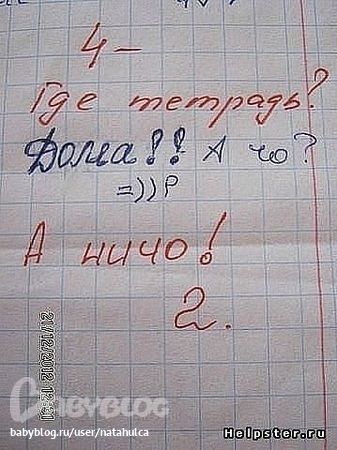 4-
Где тетрадь?
Дома!! А чо?
=))P
А ничо!
2.
21/12/2012 12:31
BABYBLOG
babyblog.ru/user/natahulca
Helpster.ru